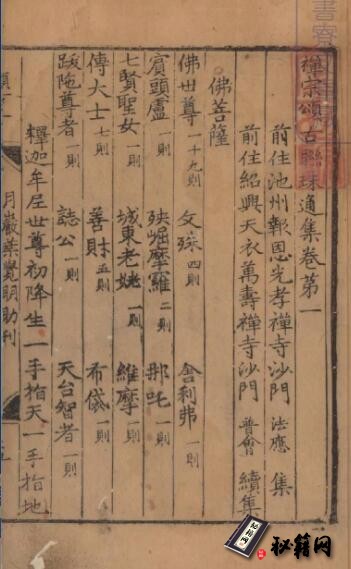 禪宗頌古聯珠通集卷第一
前住池州報恩光孝禪寺沙門 法應 集
前住紹興天衣萬壽禪寺沙門 普會 續集
佛菩薩
佛世尊 一十九則 文殊 四則 舍利弗 一則
賓頭盧 一則 殃崛摩羅 二則 那吒 一則
七賢聖女 一則 城東老姥 一則 維摩 一則
傅大士 七則 善財 五則 布袋 一則
跋陁尊者 一則 誌公 一則 天台智者 一則
釋迦牟尼世尊初降生一手指天一手指地
月巖葉覺明助刊
秘籍网
秘籍网